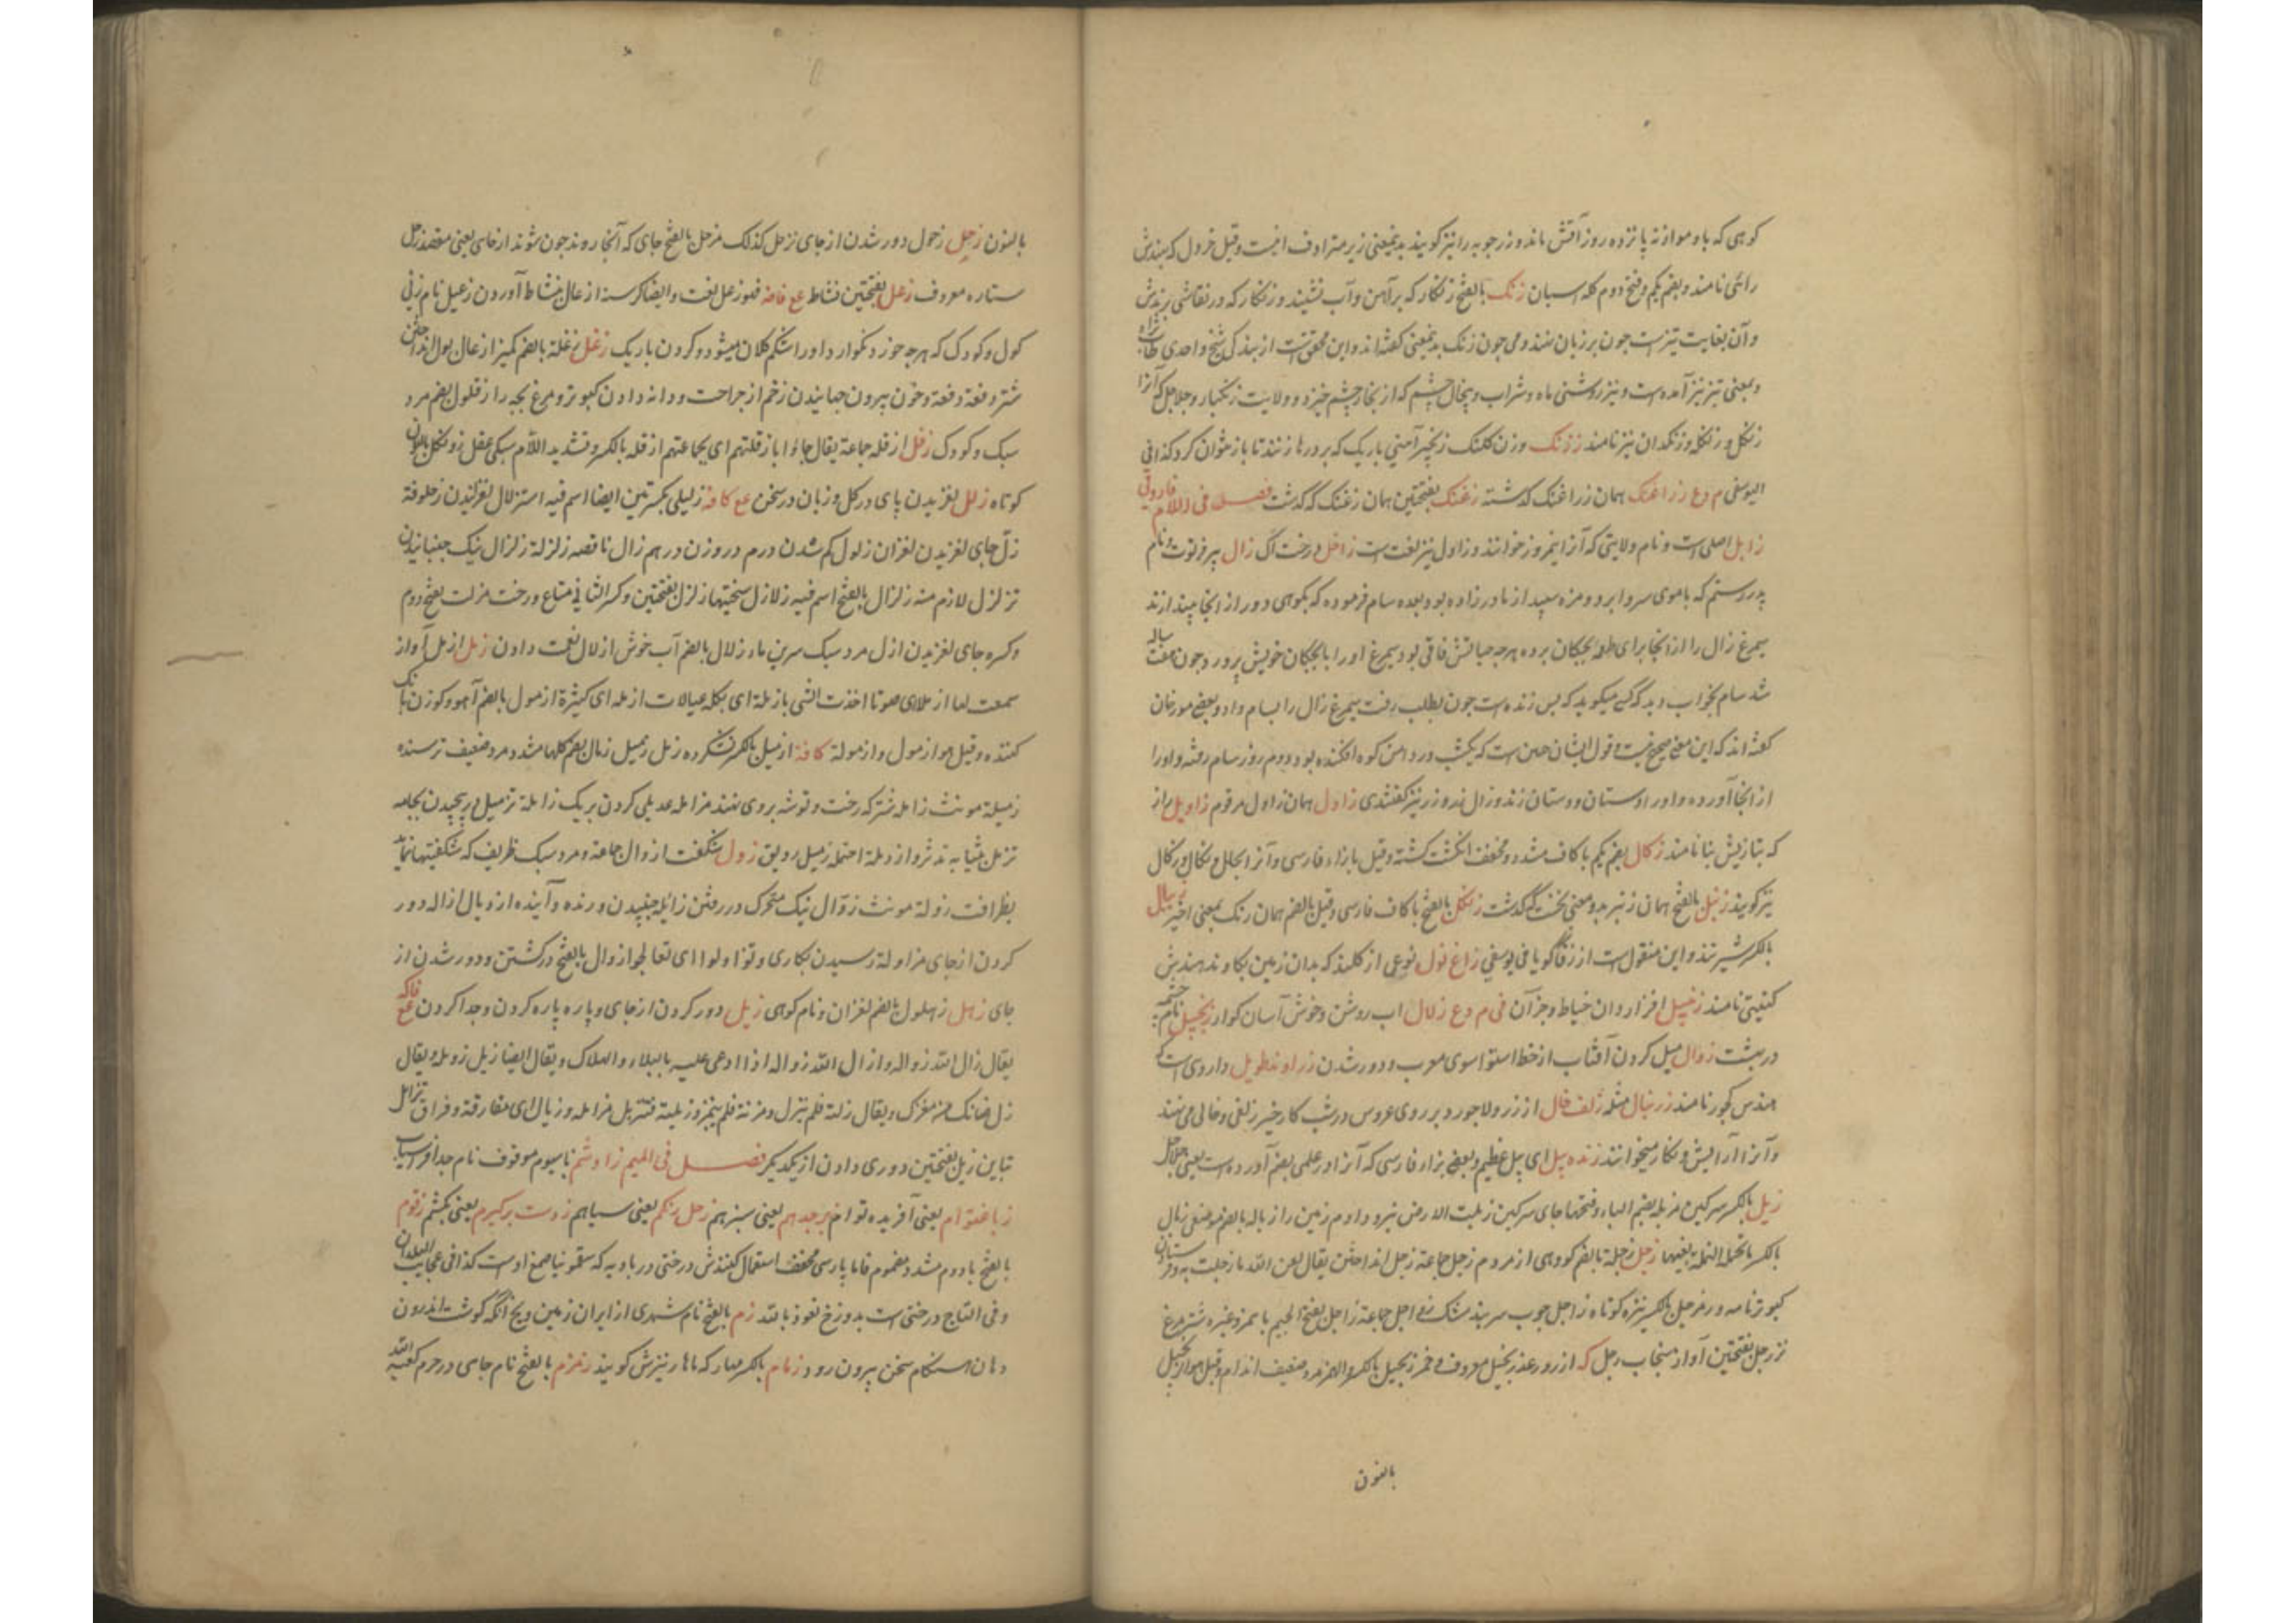 کوهی که باد موازنه پانزده روز آفتش ماند و زرجوبه را نیز کویند بدینمعنی زیر مترادف اینست وقیل خردل که بهندش
رائی نامند و بضم یکم و فتح دوم کله اسبان زنک بالفتح زنکار که بر آهن و آب نشیند و زنکار که در نقاشی برندش
و آن بغایت تیز است چون بر زبان نهند و می چون زنک بدینمعنی گفته اند و این محقق است از بندگی شیخ واحدی
و بمعنی تیز نیز آمده است و نیز روشنی ماه و شراب و پیخال چشم که از بخار چشم خیزد و ولایت زنکبار و جلاجل که آنرا
زنکل و زنکله و زنکدان نیز نامند زرنک وزن کلنک زنجیر آهنی باریک که بر درها زنند تا باز نتوان کرد کذا فی
الیوسفی م وع زراغنک همان زراغنک که گذشته زغنک بفتحتین همان زغنک که گذشت فصل فی اللام فارونی
زابل اصلی است و نام ولایتی که آنرا نیمروز خوانند و زاول نیز لغت است زاخل درخت آک زال پیر فرتوت و نام
پدر رستم که با موی سر و ابرو و مژه سپید از مادر زاده بود بعده سام فرموده که بکوهی دور از اینجا بیندازند
سیمرغ زال را از آنجا برای طعمه بچکان برده هرچه حیاتش باقی بود سیمرغ او را با بچکان خویش پرورد چون هفت ساله
شد سام بخواب دید که کسی میکوید که پسر زنده است چون بطلب رفت سیمرغ زال را بسام داد و بعضی مورخان
گفته اند که این معنی صحیح نیست و قول ایشان همین است که یکشب در دامن کوه افکنده بود دوم روز سام رفته و او را
از آنجا آورده و او را دستان و دستان زند و زال زر و زر نیز کفتندی زاول همان زاول مرقوم زاویل راز
که بتازیش بنا نامند زکال بضم یکم با کاف مشدد و مخفف انکشت کشته وقیل بازاء فارسی و آنرا
نیز کویند زنبل بالفتح همان زنبر بدو معنی نخست که گذشت زنکل بالفتح با کاف فارسی وقیل بالضم همان زنک بمعنی اخیر
بالکسر شیر تند و این منقول است از زفانگویا فی یوسفی زاغ نول نوعی از کلند که بدان زمین بکاوند بهندش
کنیتی نامند زنبیل افزار دان خیاط و جز آن فی م وع زلال اب روشن و خوش آسان کوار زنجبیل نام چشمه
در بهشت زوال میل کردن آفتاب از خط استوا سوی مغرب و دور شدن زراوند طویل داروی است که
هندس کجور نامند زرنبال مثله زلف و خال از زر و لاجورد بر روی عروس در شب کار خیر زلفی و خالی می نهند
و آنرا آرایش و نکار میخوانند زنده پیل ای پیل عظیم و بعضی بزاء فارسی که آنرا در علمی بضم آورده است
زبل بالکسر سرکین مزبله بضم الباء و فتحها جای سرکین زبلت الارض نیرو دادم زمین را زباله بالضم موضعی زبال
بالکسر ما تحمله النملة بفیها زجل زجلة بالضم کروهی از مردم زجل جماعة زجل انداختن یقال لعن الله ما زجلت به
کبوتر نامه بر مزجل بالکسر نیزه کوتاه زاجل چوب سربند مشک زواجل جماعة زاجل بفتح الجیم با همزه و غیره شتر مرغ
نر زجل بفتحتین آواز سحاب زجل که از رور عذر نجیل معروف و خمر زنجیل بالکسر والهمز مرد ضعیف اندام وقیل هو از نجیل
بالنون
بالنون زحل زحول دور شدن از جای تزحل کذلک مزحل بالفتح جای که آنجا روند چون شوند از جای یعنی مقصد زحل
ستاره معروف زعل بفتحتین نشاط مع فاضه فهو زعل نعت و ایضا کرسنه ازعال نشاط آوردن زعیل نام زنی
کول و کودک که هرچه خورد نکوارد او را شکم کلان میشود و کردن باریک زغل زغلة بالضم کمیز ازغال بول انداختن
شتر دفعة دفعة و خون بیرون جهانیدن زخم از جراحت و دانه دادن کبوتر و مرغ بچه را زغلول بضم مرد
سبک و کودک زفل ازفله جماعة یقال جاؤا بازفلتهم ای بجماعتهم ازفله بالکسر و تشدید اللام سبکی عقل
کوتاه زلل لغزیدن پای در کل و زبان در سخن مع کافه زلیلی بکسرتین ایضا اسم فیه استزلال لغزانیدن زحلوفة
زل جای لغزیدن لغزان زلول کم شدن درم در وزن درهم زال ناقصه زلزلة زلزال نیک جنبانیدن
تزلزل لازم منه زلزال بالفتح اسم فیه زلازل سختیها زلزل بفتحتین و کسر الثانی متاع و رخت مزلت بفتح دوم
و کسره جای لغزیدن ازل مرد سبک سرین ماء زلال بالضم آب خوش ازلال نعمت دادن زمل ازمل آواز
سمعت لها ازملا ای صوتا اخذت الشی بازملة ای بکله عیالات ازمله ای کثیرة ازمول بالضم آهو و کوزن بانک
کننده وقیل هو ازمول و ازمولة کافة ازمیل بالکسر نشکرده زمل زمیل زمال بضم کلها مشدد مرد ضعیف ترسنده
زمیلة مونث زامله شتر که رخت و توشه بر وی نهند مزامله عدیلی کردن بر یک زاملة تزمیل پیچیدن بجامه
تزمل بثیابه تدثر و ازدملة احتمله زمیل ردیق زول شکفت ازوال جماعة و مرد سبک ظریف که شکفتیها نماید
بظرافت زولة مونث زوال نیک متحرک در رفتن زایله جنبیدن ورنده و آینده ازدیال ازاله دور
کردن از جای مزاولة رسیدن بکاری و تزاولوا ای تعالجوا زوال بالفتح در کشتن و دور شدن از
جای زهل زهلول بالضم لغزان و نام کوهی زیل دور کردن از جای و پاره پاره کردن و جدا کردن مع فاکه
یقال زال الله زواله و ازال الله زواله اذا ادعی علیه بالبلاء والهلاک ویقال ایضا زیل زویله ویقال
زل ضانک من معزک ویقال زلته فلم ینزل و مزته فلم ینمز و زیلته فتزیل مزایله و زیال ای مفارقة و فراق تزایل
تباین زیل بفتحتین دوری دادن از یکدیکر فصل فی المیم زاوشم با سیوم موقوف نام جد افراسیاب
زباغتوام یعنی آفریده توام برجدیم یعنی سبزیم زحل رنکم یعنی سیاهم زدست برکیرم یعنی بکشم زقوم
بالفتح با دوم مشدد مضموم فاما پارسی مخفف استعمال کنندش درختی در بادیه که سقمونیا صمغ اوست کذا فی عجایب البلدان
و فی التاج درختی است بدوزخ نعوذ بالله زم بالفتح نام شهری از ایران زمین و بیخ انکه کوشت اندرون
دهان هنکام سخن بیرون رود زمام بالکسر مهار که ماهار نیزش کویند زمزم بالفتح نام چاهی در حرم کعبه الله